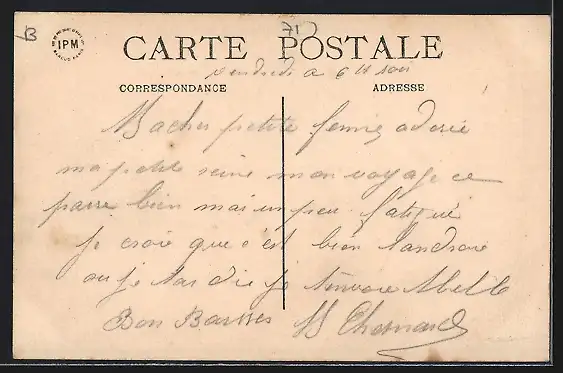 B
71
IPM
CARTE POSTALE
vendredi a 6 H soir
CORRESPONDANCE
ADRESSE
Ma cher petite femme adorée
ma petite reine mon voyage ce
passe bien mai un peu fatigué
je croie que c'est bien l'androie
ou je tai die je t'envoie
Bon Baisses